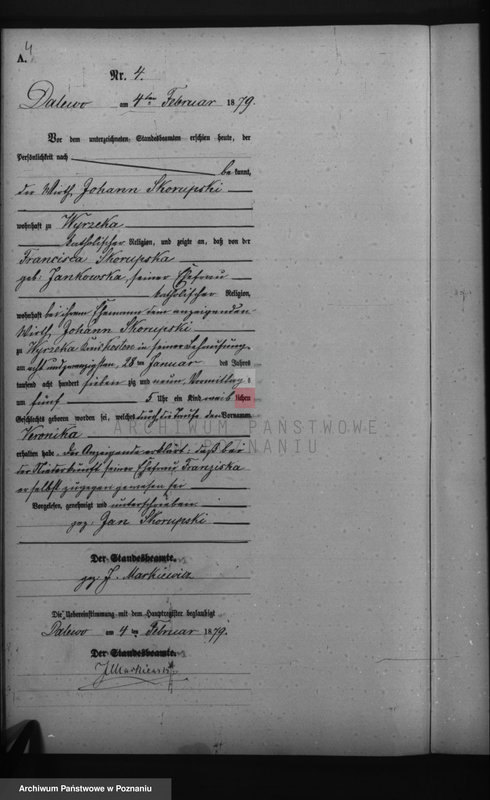 4
A.
Nr. 4.
Dalewo am 4ten Februar 1879.
Vor dem unterzeichneten Standesbeamten erschien heute, der
Persönlichkeit nach
bekannt,
der Wirth Johann Skorupski
wohnhaft zu Wyrzeka
katholischer Religion, und zeigte an, daß von der
Francisca Skorupska
geb: Jankowska, seiner Ehefrau
katholischer Religion,
wohnhaft bei ihrem Ehemanne dem anzeigenden
Wirth Johann Skorupski
zu Wyrzeka in seiner Behausung
am acht und zwanzigsten, 28 ten Januar des Jahres
tausend acht hundert siebenzig und neun, Vormittag s
um fünf 5 Uhr ein Kind weiblichen
Geschlechts geboren worden sei, welches durch die Taufe den Vornamen
Veronika
erhalten habe. Der Anzeigende erklärt: daß bei
der Niederkunft seiner Ehefrau Franziska
er selbst zugegen gewesen sei
Vorgelesen, genehmigt und unterschrieben
gez: Jan Skorupski
Der Standesbeamte.
gez J. Markiewicz
Die Uebereinstimmung mit dem Hauptregister beglaubigt
Dalewo am 4 ten Februar 1879.
Der Standesbeamte.
JMarkiewicz
ARCHIWUM PAŃSTWOWE
W POZNANIU
Archiwum Państwowe w Poznaniu